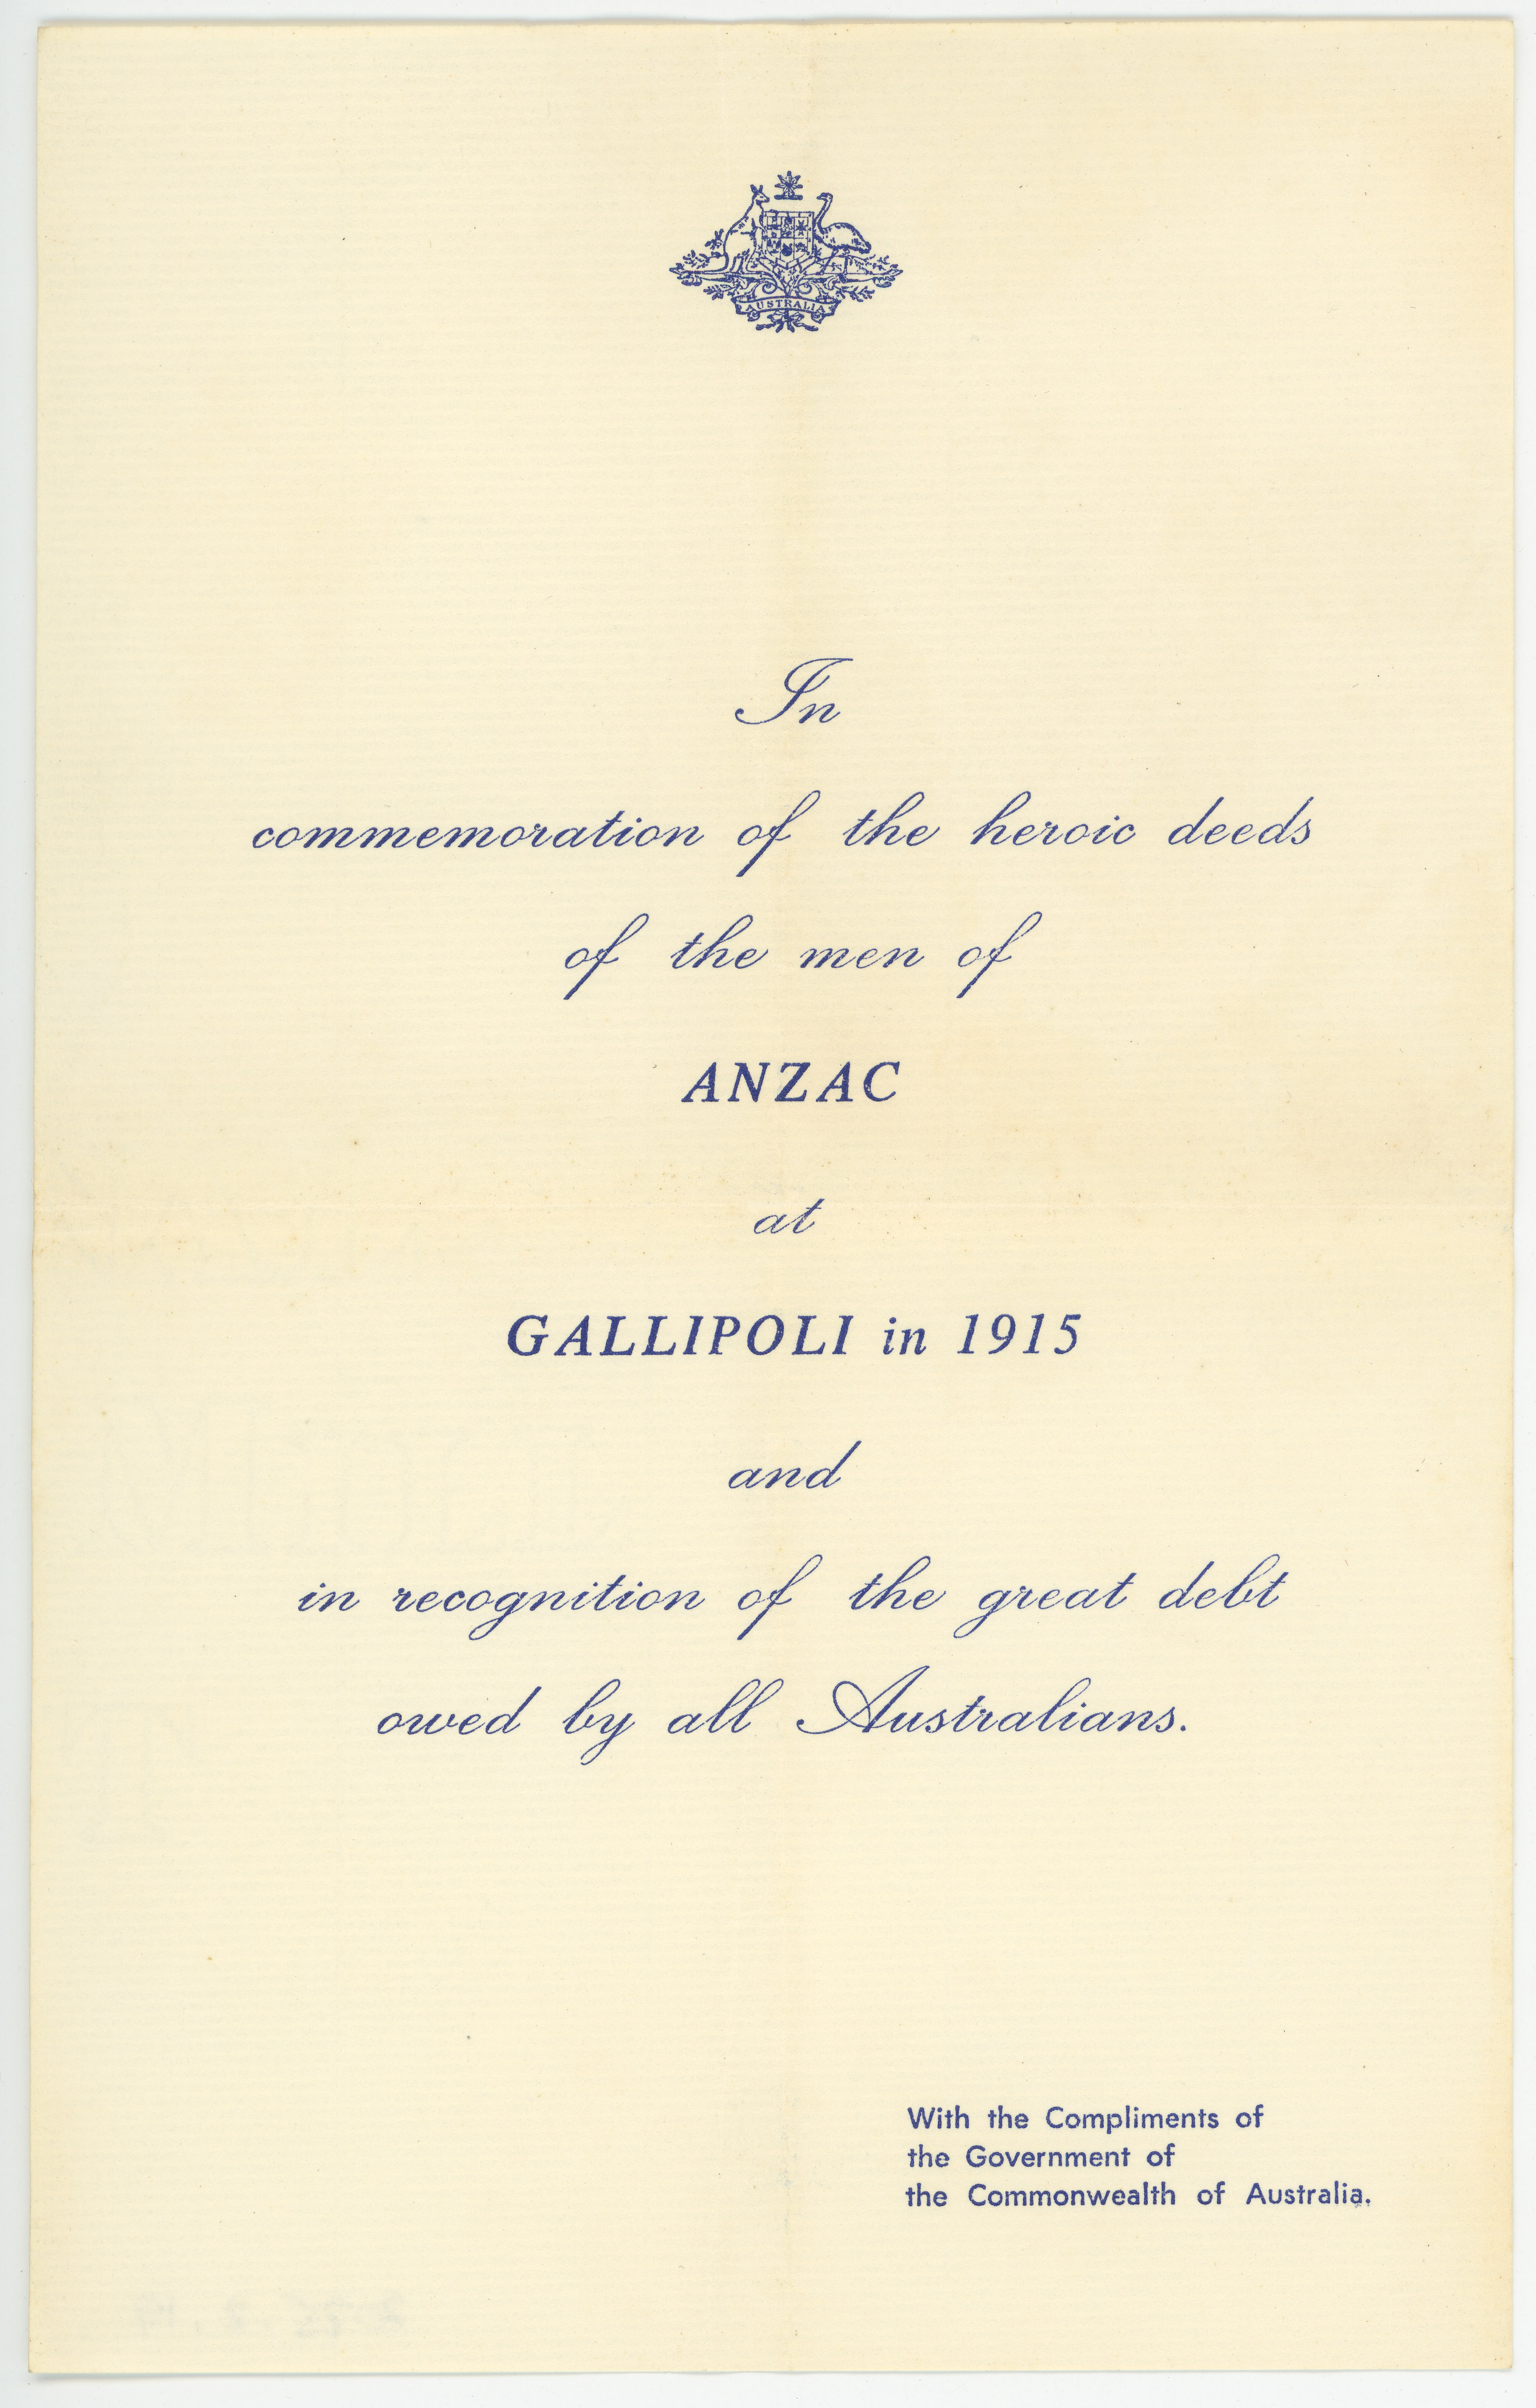 AUSTRALIA
In
commemoration of the heroic deeds
of the men of
ANZAC
at
GALLIPOLI in 1915
and
in recognition of the great debt
owed by all Australians.
With the Compliments of
the Government of
the Commonwealth of Australia.